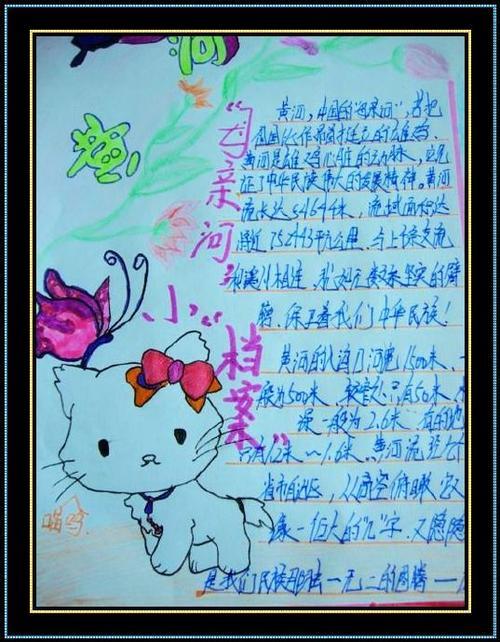 河
黄
"母亲河"
小"档案"
黄河,中国的"母亲河",若把
祖国比作昂首挺立的雄鸡,
黄河是雄鸡心脏的动脉,它见
证了中华民族伟大的发展精神。黄河
流长达5464千米,流域面积达
将近752443平方公里,与上千条支流
和溪川相连,犹如无数双坚实的臂
膀,保卫着我们中华民族!
黄河的入海口河宽1500米,一
般为500米,较窄处只有50米,水
深一般为2.6米,有的地
只有1.2米~1.6米,黄河流经九个
省市自治区,从高空俯瞰,它又
像一个大的"几"字,又隐隐
是我们民族那独一无二的图腾——
喵呜